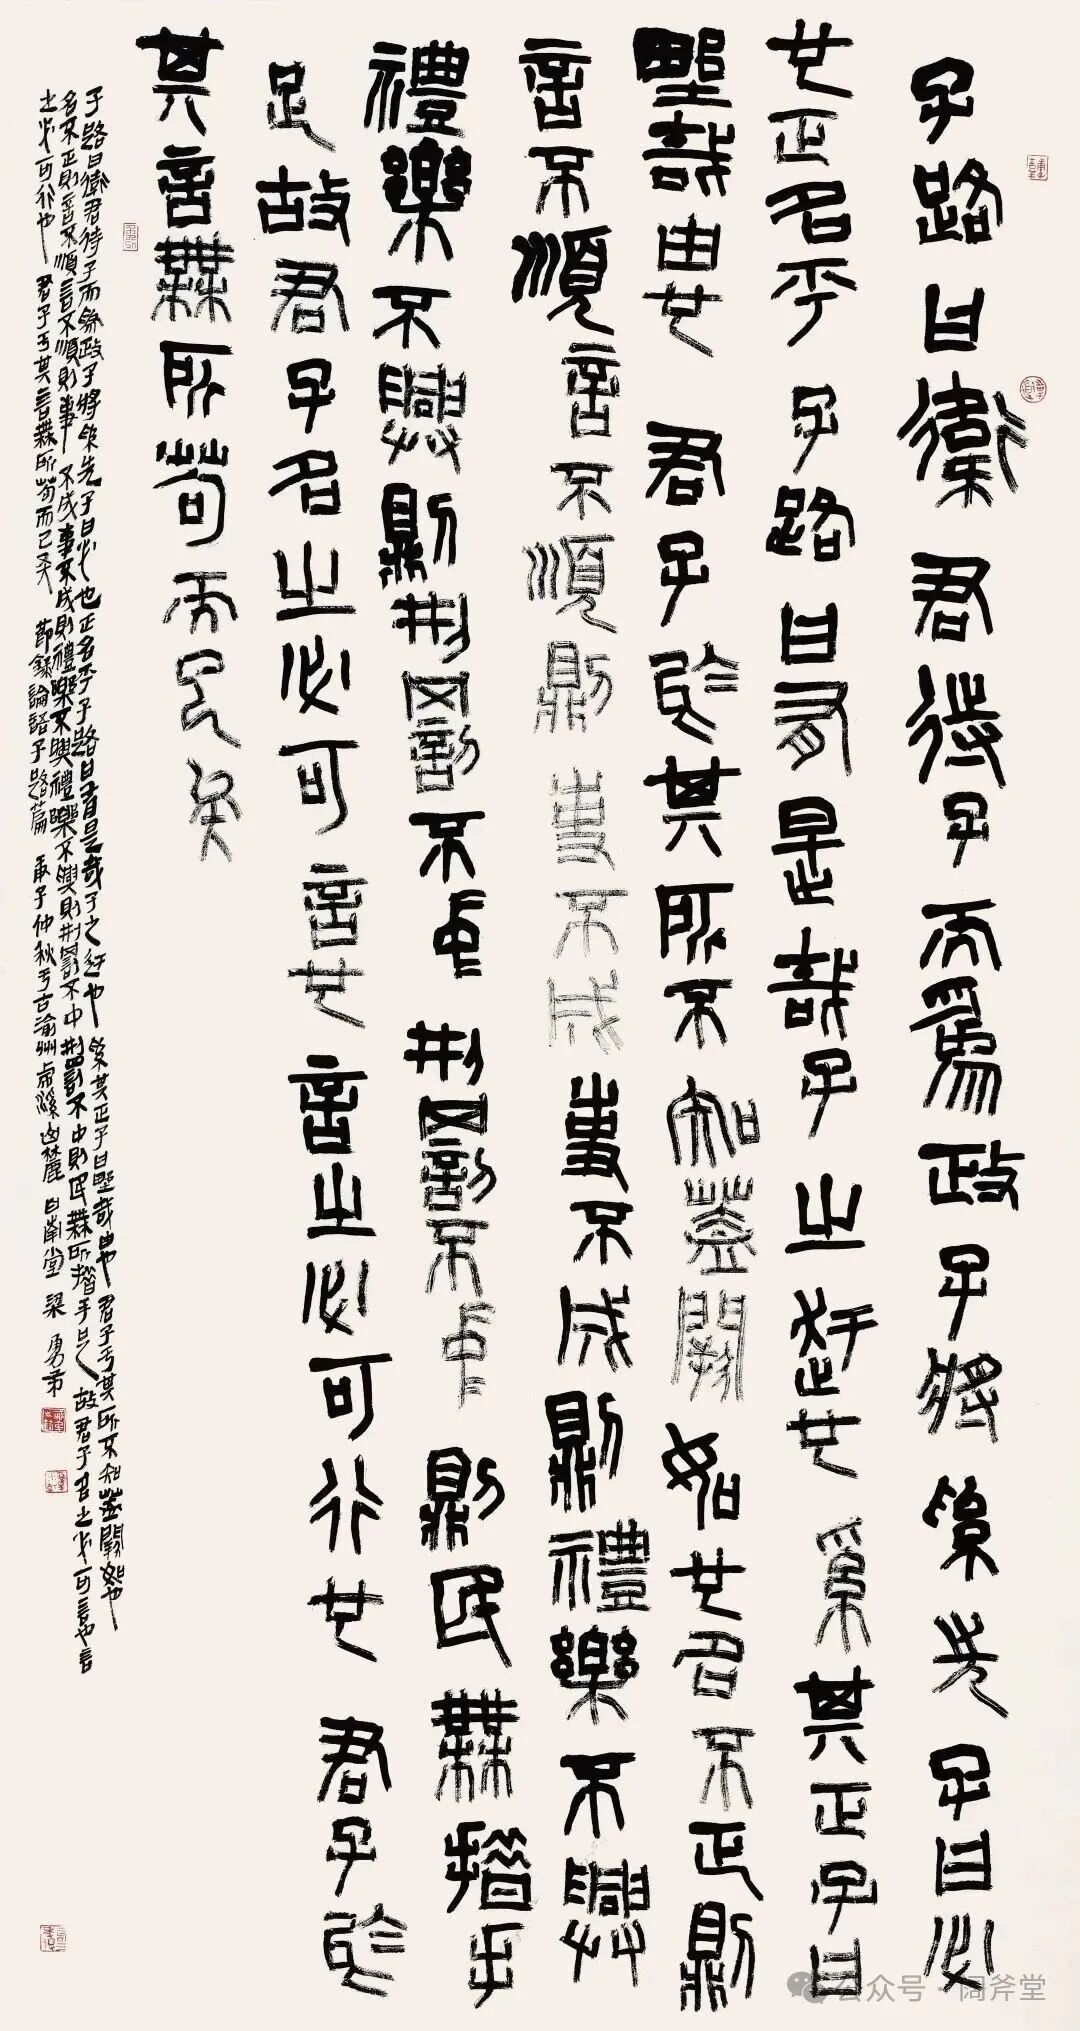 子路曰衛君待子而為政子將奚先子曰必
也正名乎子路曰有是哉子之迂也奚其正子曰
野哉由也君子於其所不知蓋闕如也名不正則
言不順言不順則事不成事不成則禮樂不興
禮樂不興則刑罰不中刑罰不中則民無措手
足故君子名之必可言也言之必可行也君子於
其言無所苟而已矣
子路曰衛君待子而為政子將奚先子曰必也正名乎子路曰有是哉子之迂也奚其正子曰野哉由也君子于其所不知蓋闕如也
名不正則言不順言不順則事不成事不成則禮樂不興禮樂不興則刑罰不中刑罰不中則民無所措手足故君子名之必可言也言
之必可行也君子于其言無所苟而已矣節錄論語子路篇庚子仲秋于古渝州虎溪山麓白南堂梁勇
公众号·阔斧堂